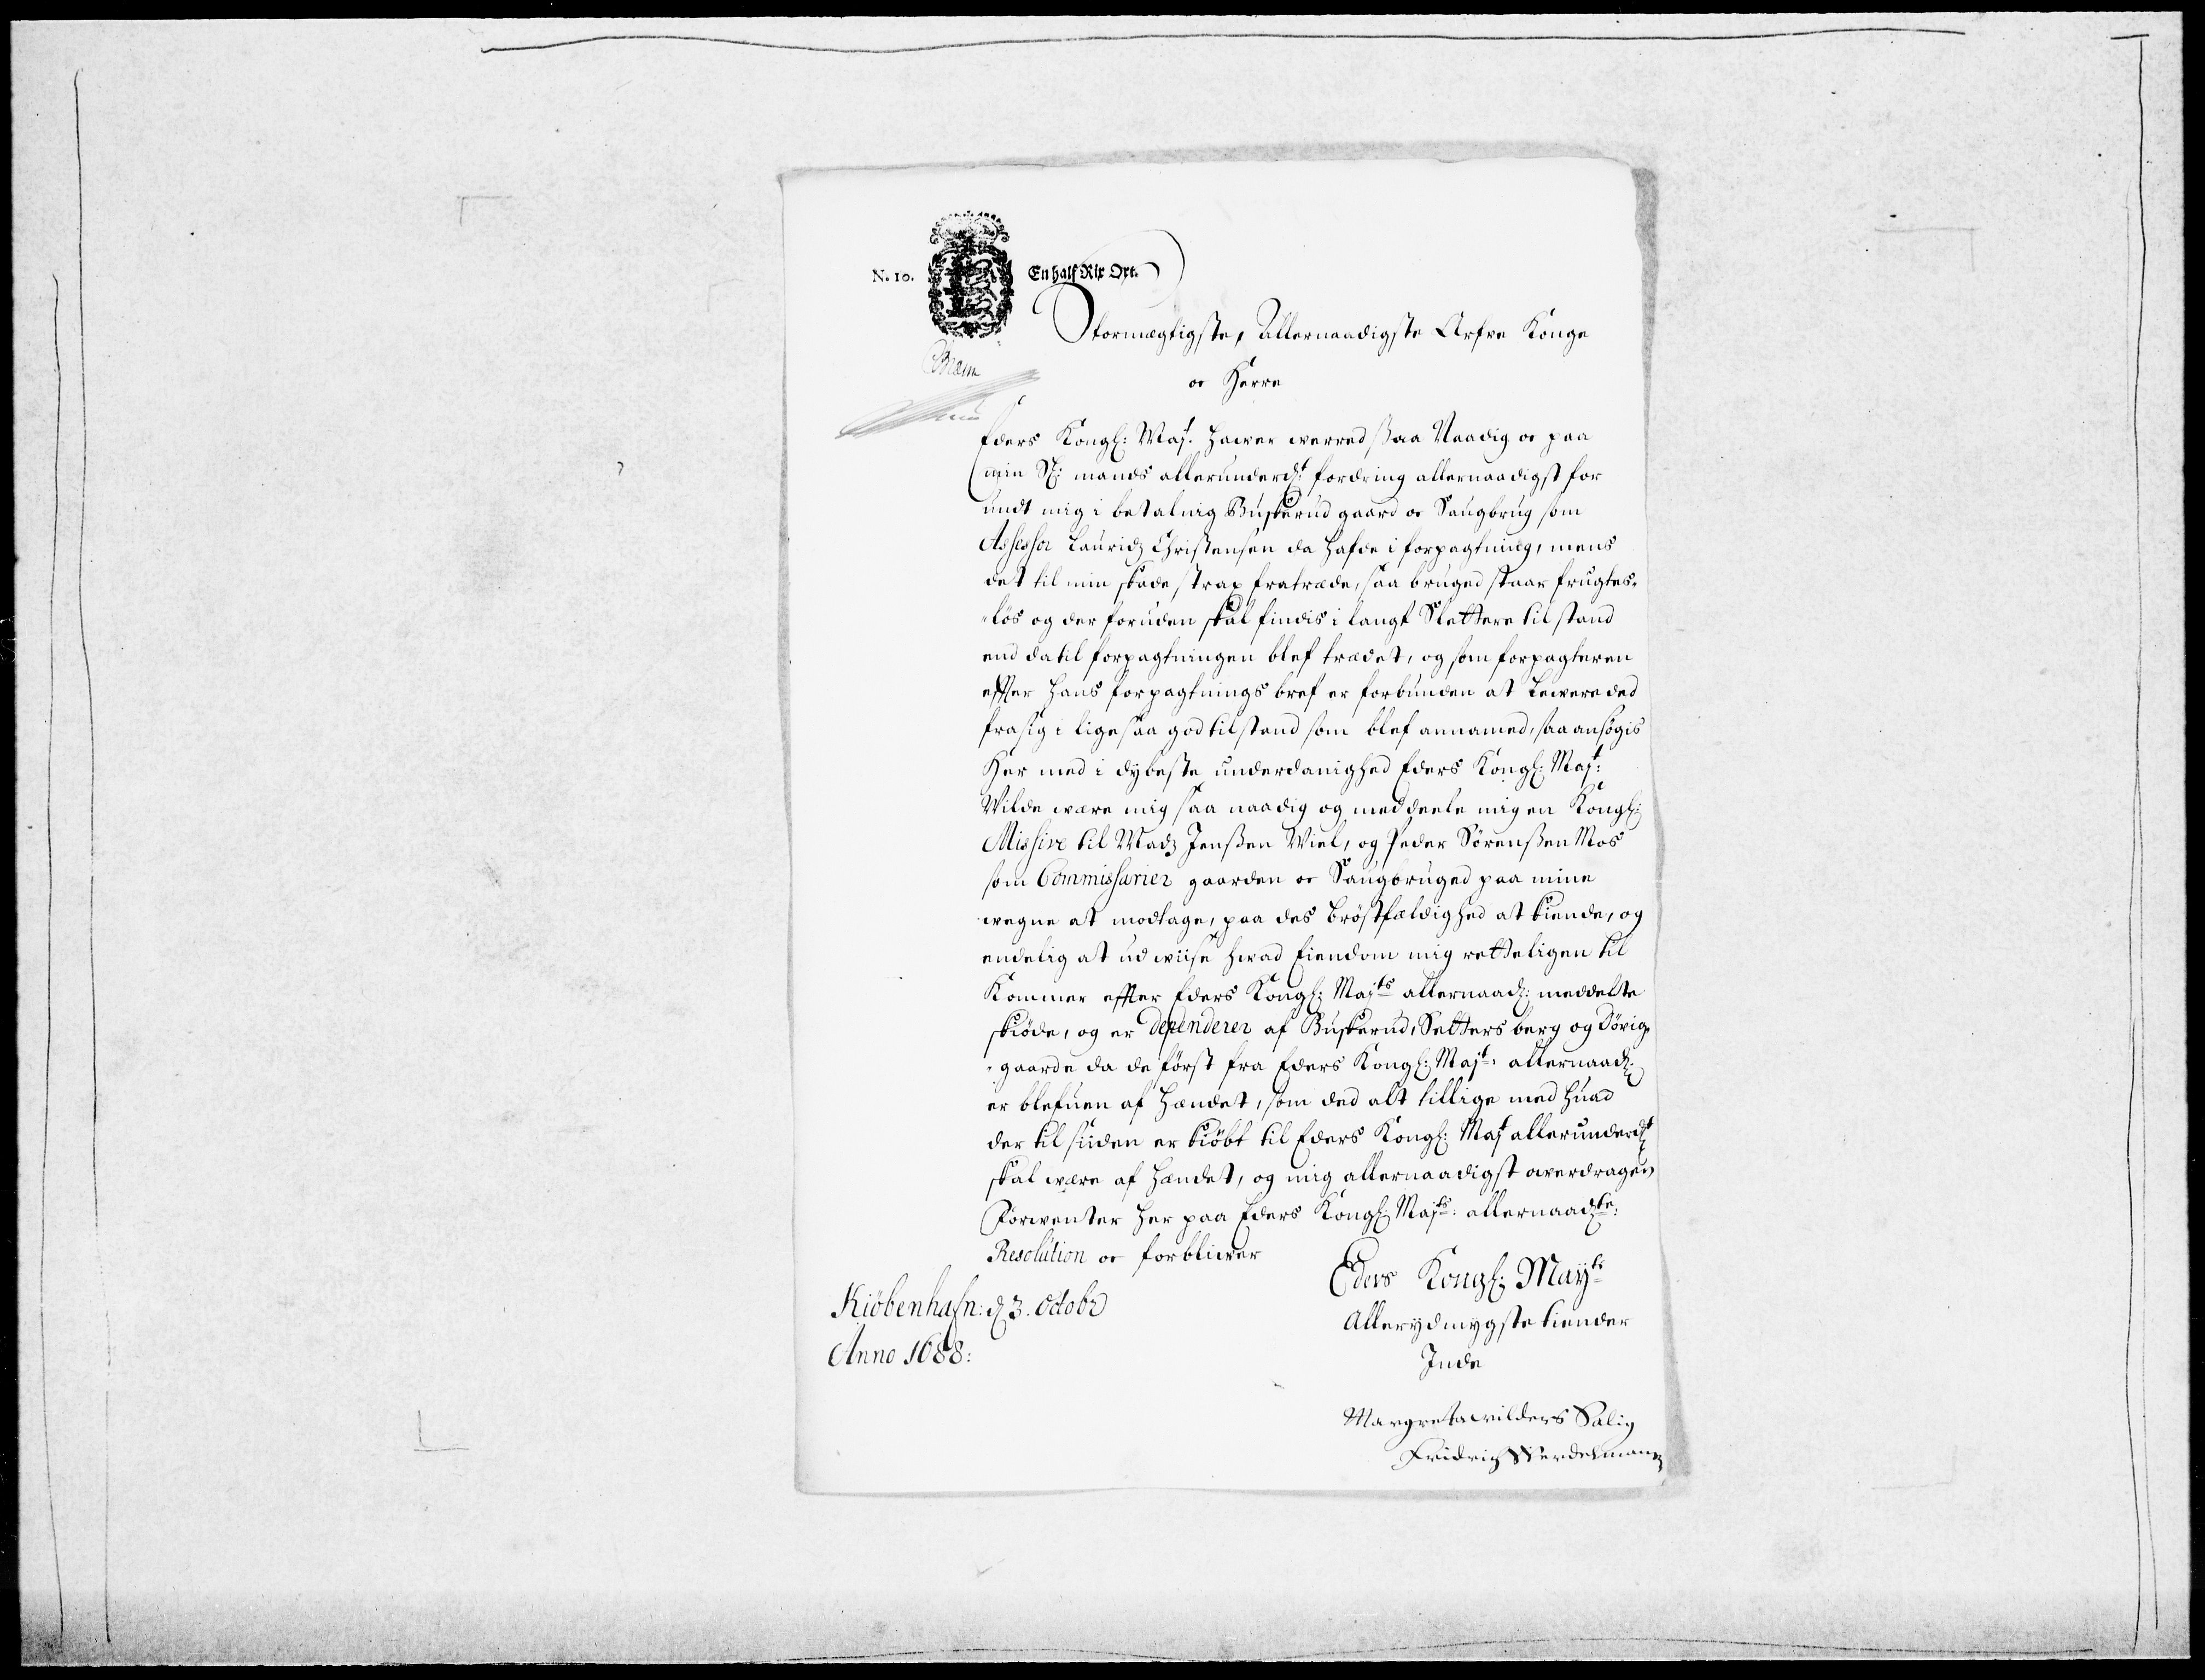 N. 10.
En half Rix Ort.
Stormægtigste, Allernaadigste Arfve Konge
oc Herre
Eders Kongl: Maj. hawer werred ssaa Naadig oc paa
min Sl: mands allerunderd:t fordring allernaadigst for
undt mig i betalnig Buskerud gaard oc Saugbrug som
Assessor Lauridz Christensen da hafde i forpagtning, mens
det til min skade strax fratræde, saa bruged staar frugtes-
-løs og der foruden skal findis i langt Slettere til stand
end da til forpagtningen blef trædet, og som forpagteren
effter hans forpagtnings bref er forbunden at Lewere ded
frasig i lige saa god tilstand som blef annamed, saa ansøgis
Her med i dybeste underdanighed Eders Kongl: Majt:
Wilde være mig saa naadig og meddeele mig en Kongl:
Missive til Madz Jenssen Wiel, og Peder Sørenssen Mos
som Commissarier gaarden oc Saugbruged paa mine
wegne at modtage, paa des brøstfældighed at kiende, og
endelig at udwiise hwad Eiendom mig retteligen til
Kommer effter Eders Kongl: Majts allernaad: meddelte
skiøde, og er dependerer af Buskerud, Setters berg og Døvig-
-gaarde da de først fra Eders Kongl: Majt: allernaad:
er blefuen af hændet, som ded alt tillige med huad
der til siiden er kiøbt til Eders Kongl: Majt allerunderdt
skal være af hændet, og mig allernaadigst owerdragen,
Forwenter her paa Eders Kongl: Majts: allernaadste:
Resolution oc forbliwer
Eders Kongl: Mayts
Kiöbenhafn: d 3. Octobr
Allerydmygste tiender
Anno 1688:
Inde
Margreta wilders Salig
Fridrich Werdelmanns